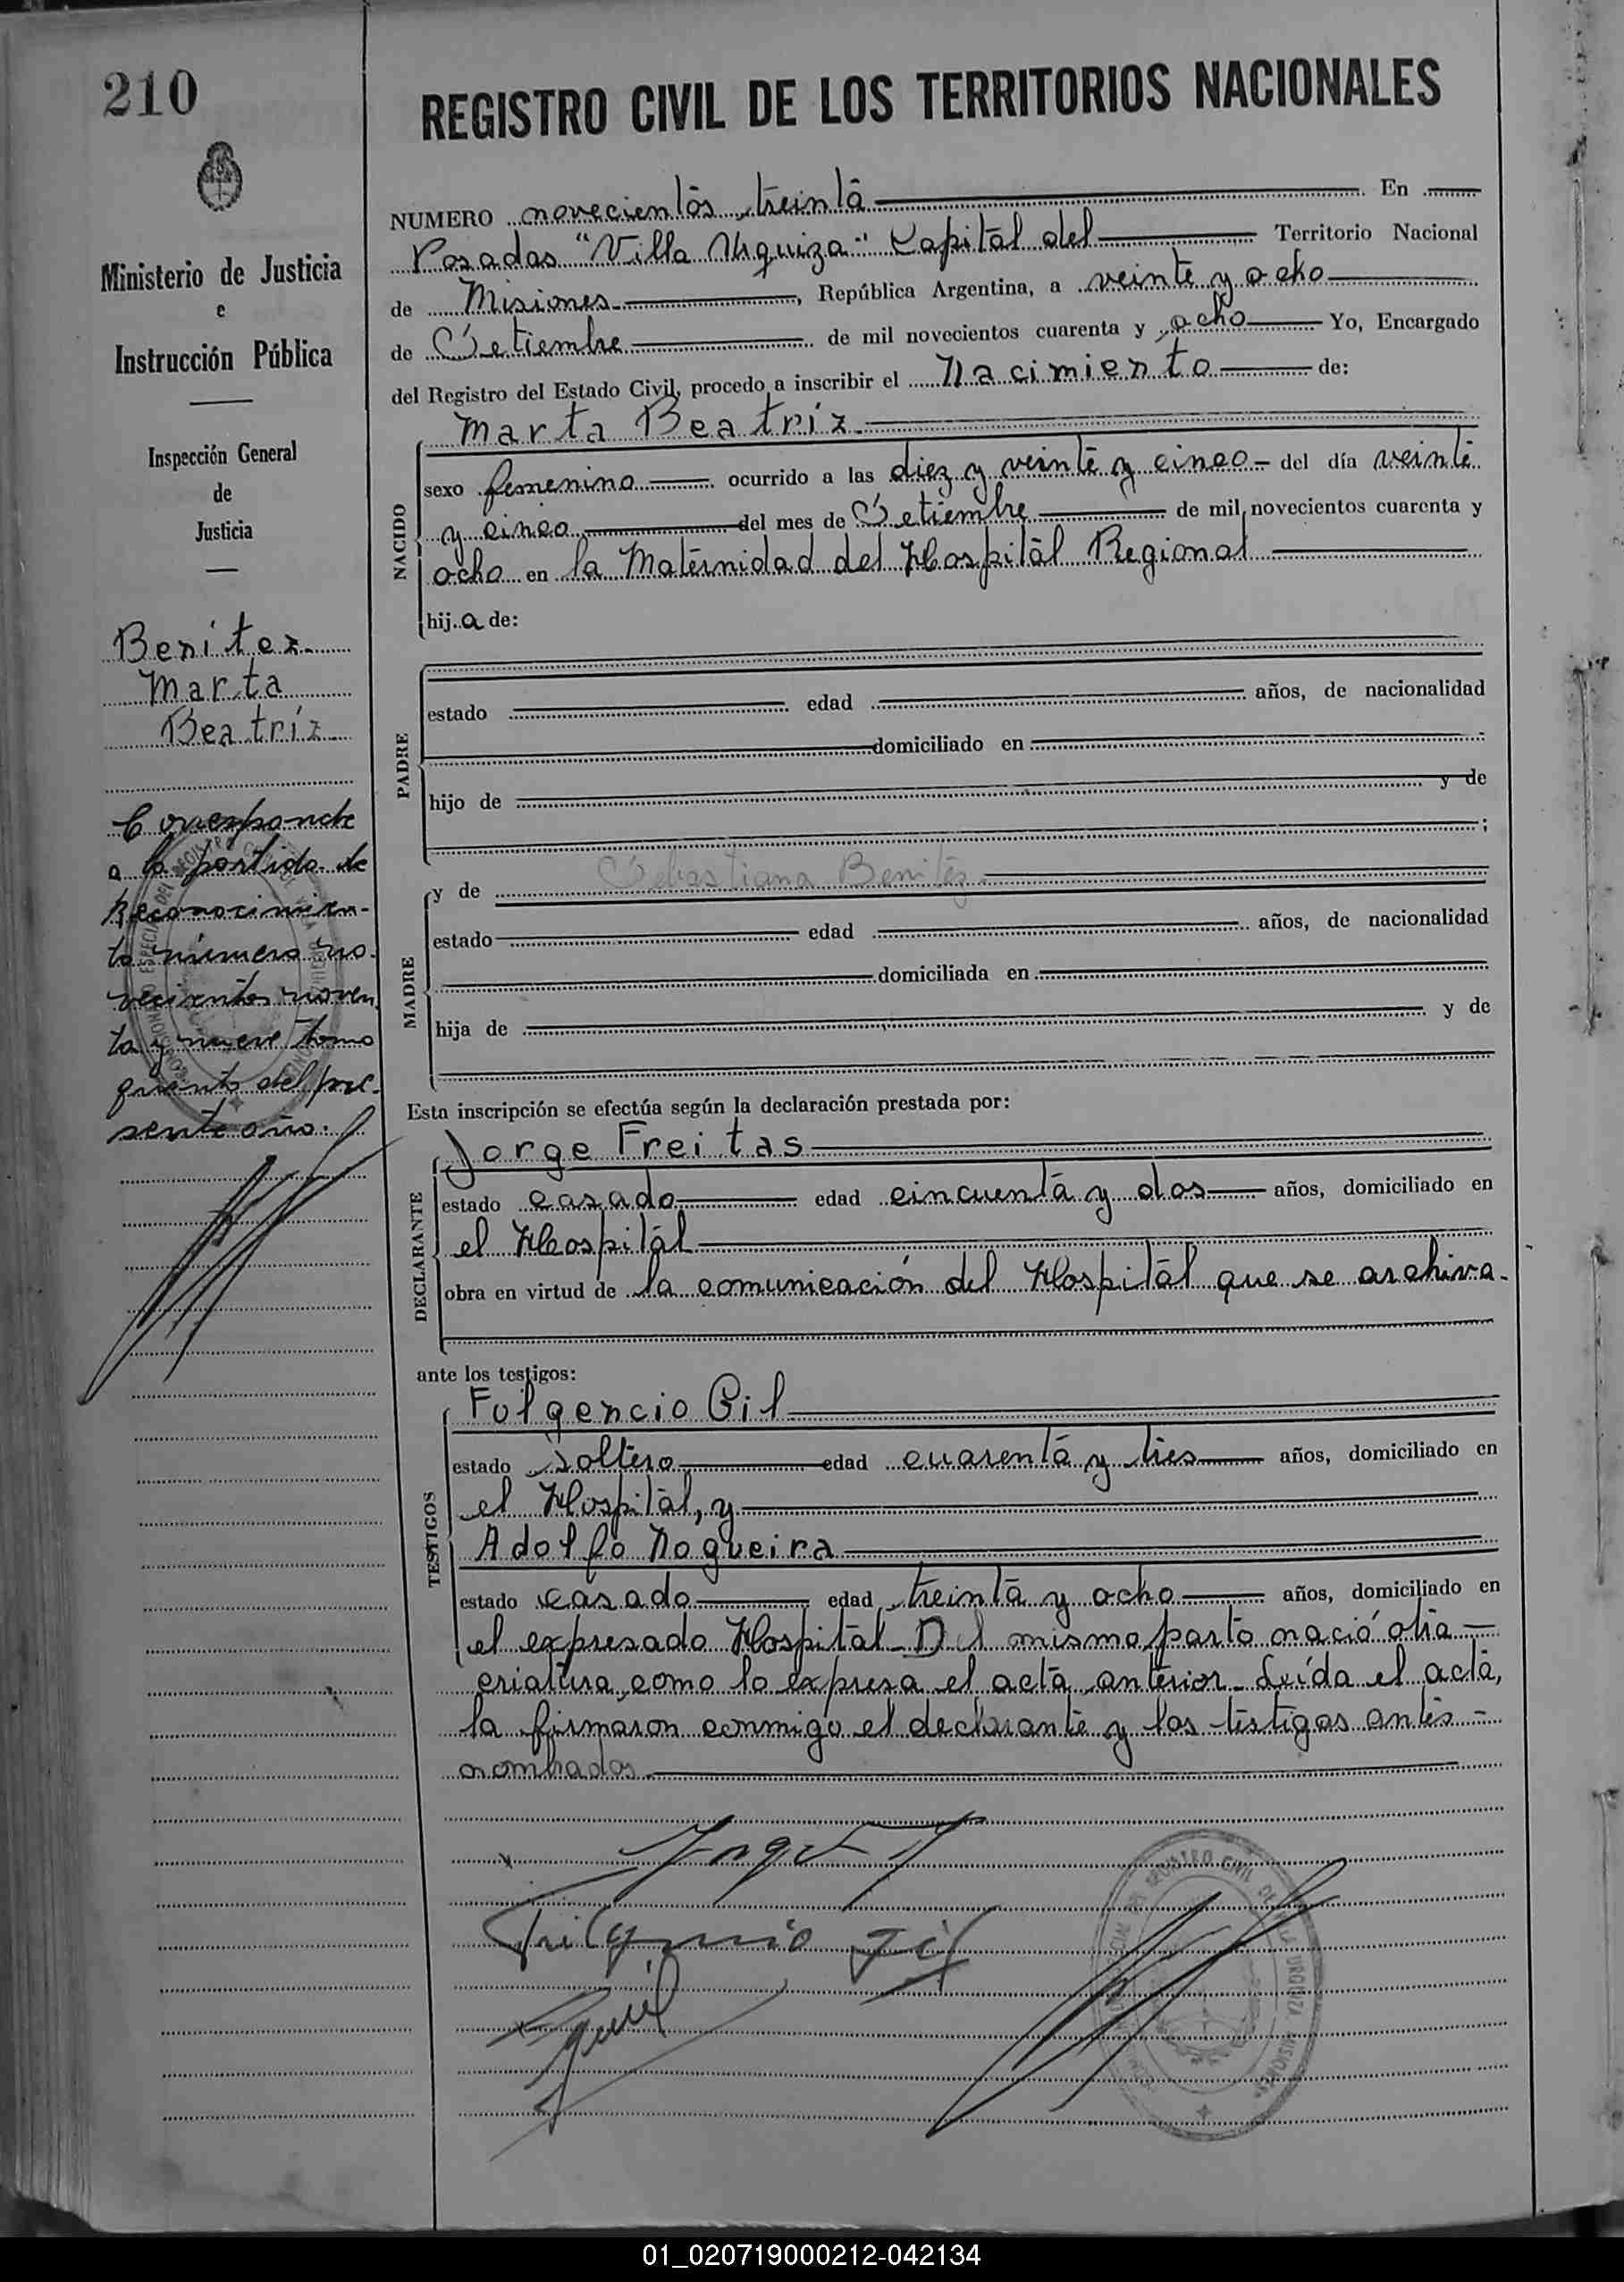 210
REGISTRO CIVIL DE LOS TERRITORIOS NACIONALES
Ministerio de Justicia
e
Instrucción Pública
Inspección General
de
Justicia
Benitez
Marta
Beatríz
Corresponde
a la partida de
Reconocimien-
to número no-
vecientos noven
ta y nueve tomo
quinto del pre-
sente año.
NUMERO novecientos treinta En
Posadas "Villa Urquiza" Capital del Territorio Nacional
de Misiones, República Argentina, a veinte y ocho
de Setiembre de mil novecientos cuarenta y ocho Yo, Encargado
del Registro del Estado Civil, procedo a inscribir el Nacimiento de:
Marta Beatríz
NACIDO
sexo femenino ocurrido a las diez y veinte y cinco del día veinte
y cinco del mes de Setiembre de mil novecientos cuarenta y
ocho en la Maternidad del Hospital Regional
hija de:
PADRE
estado edad años, de nacionalidad
domiciliado en
hijo de y de
;
MADRE
y de Sebastiana Benitez
estado edad años, de nacionalidad
domiciliada en
hija de y de
Esta inscripción se efectúa según la declaración prestada por:
DECLARANTE
Jorge Freitas
estado casado edad cincuenta y dos años, domiciliado en
el Hospital
obra en virtud de la comunicación del Hospital que se archiva.
ante los testigos:
TESTIGOS
Fulgencio Gil
estado soltero edad cuarenta y tres años, domiciliado en
el Hospital, y
Adolfo Nogueira
estado casado edad treinta y ocho años, domiciliado en
el expresado Hospital - Del mismo parto nació otra
criatura, como lo expresa el acta anterior - Leída el acta,
la firmaron conmigo el declarante y los testigos antes
nombrados
Fulgencio Gil
01_020719000212-042134